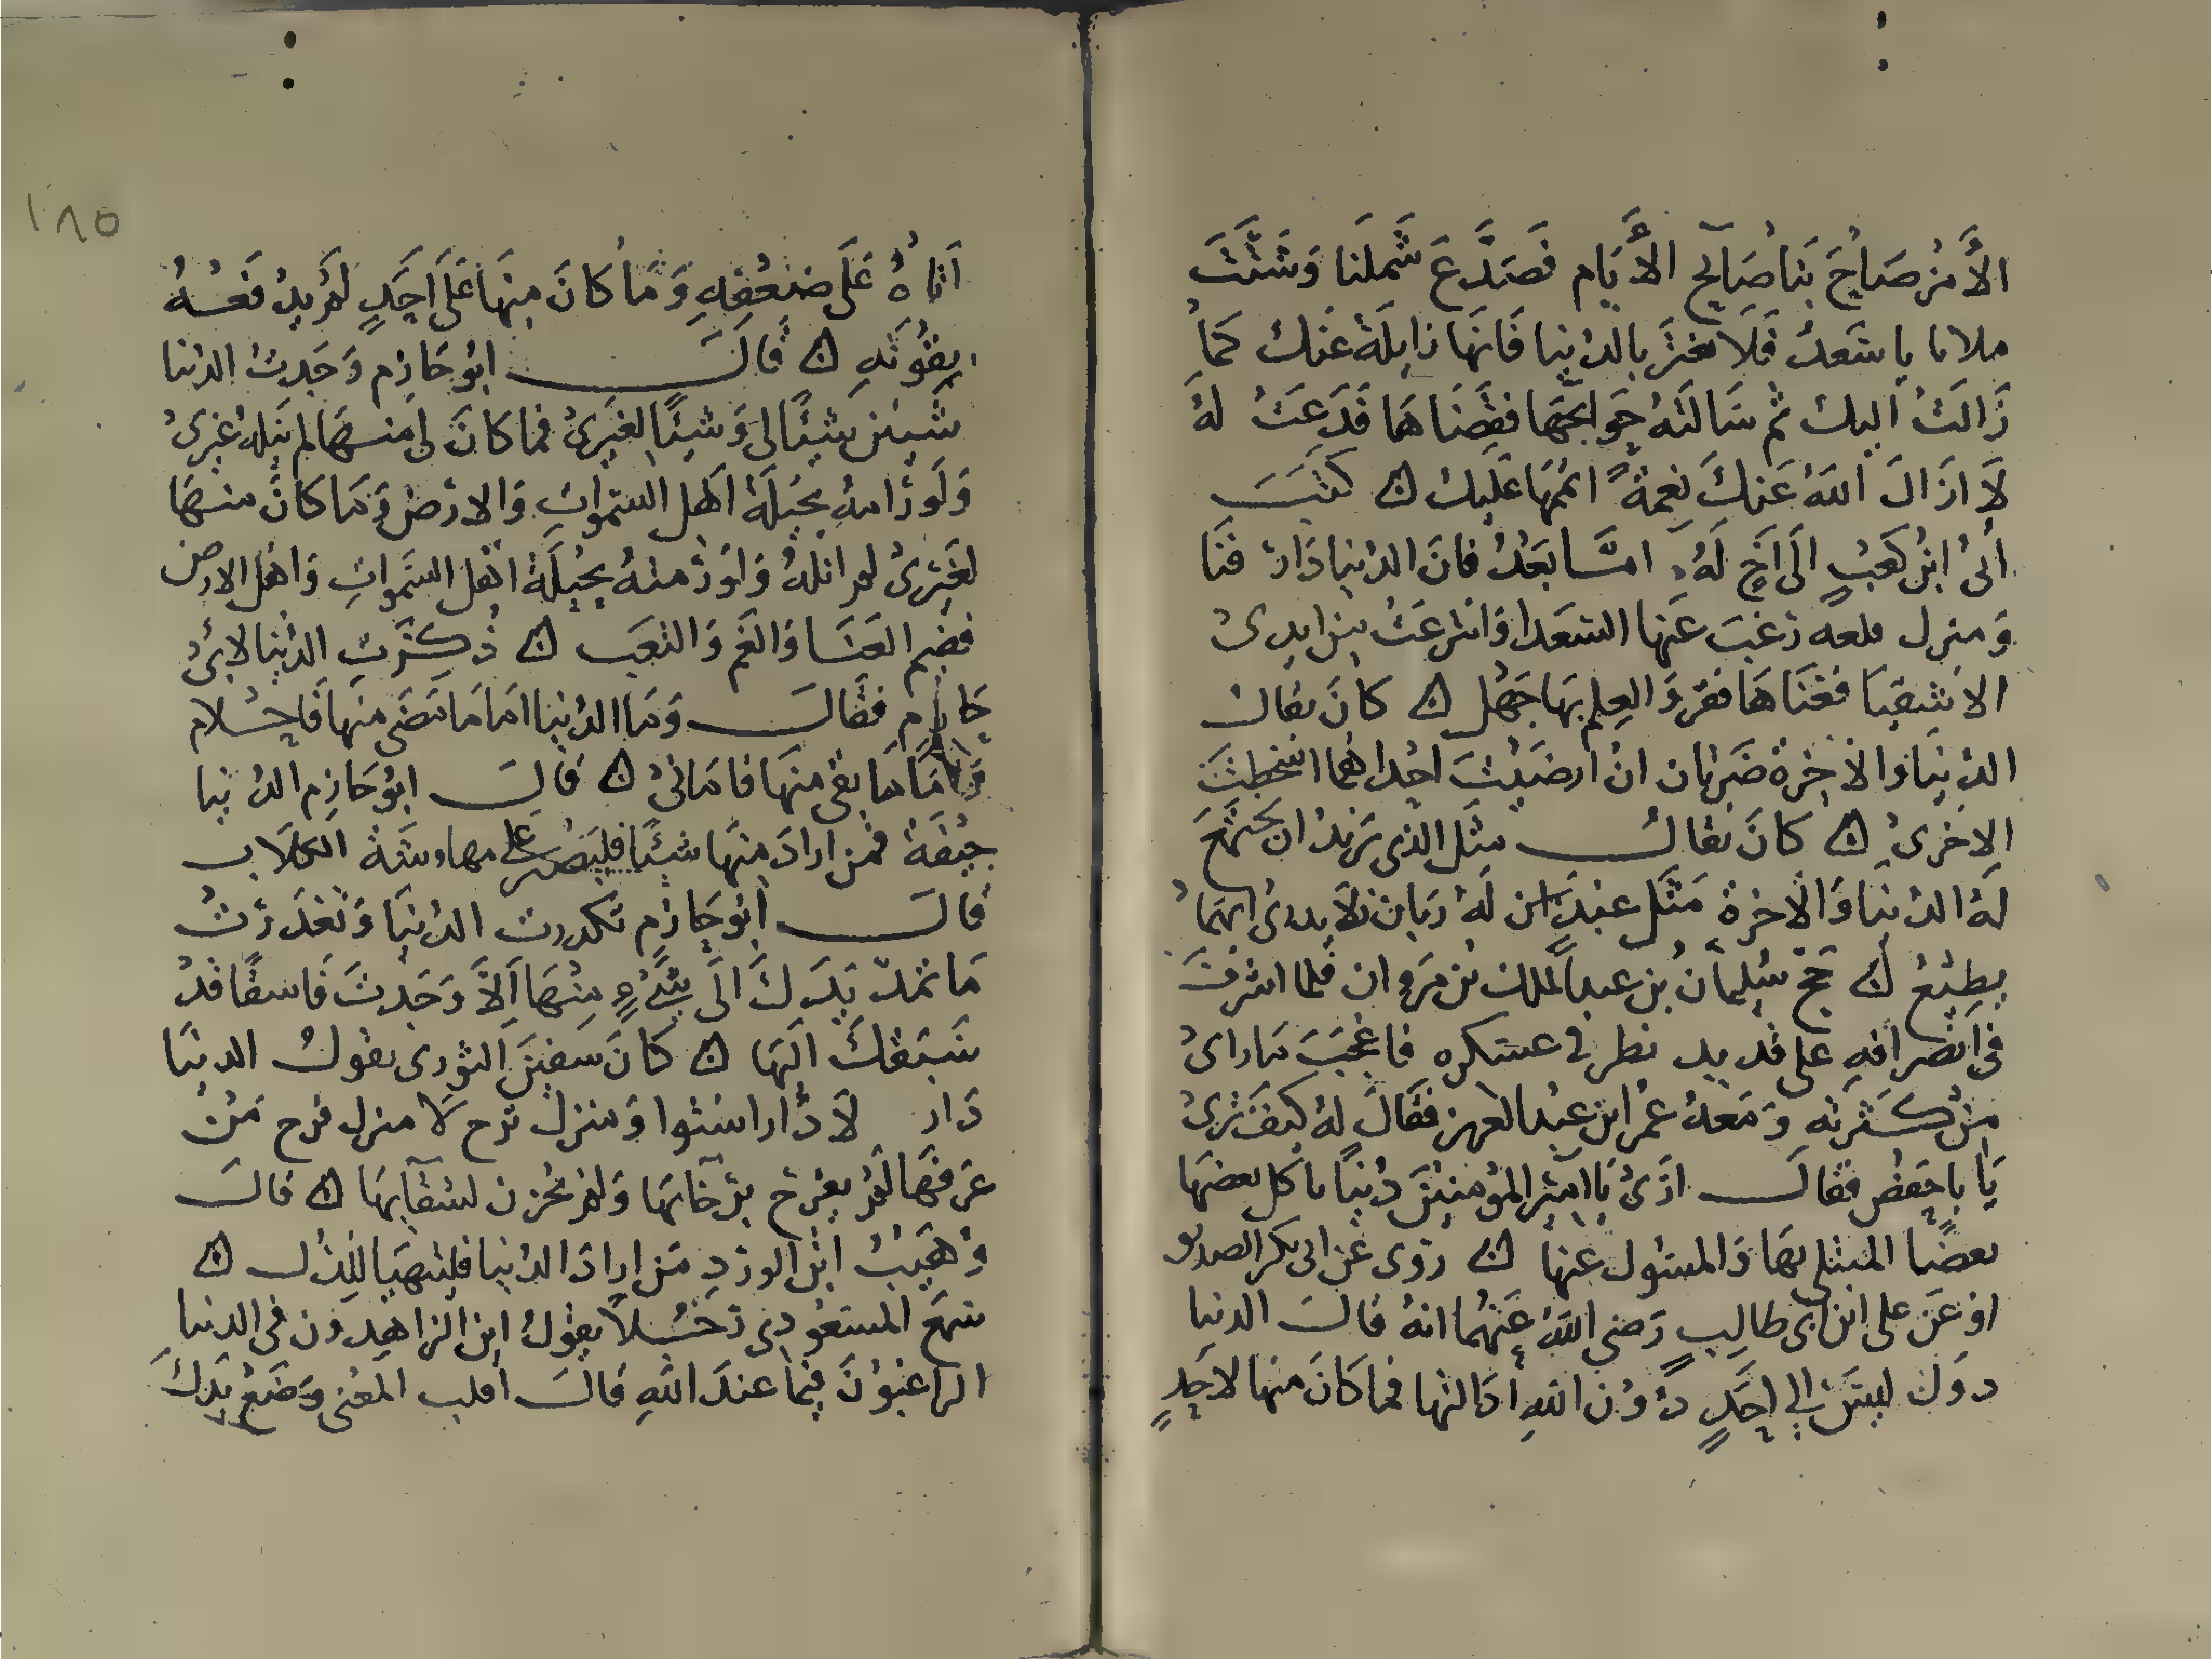 الأمر صاح بنا صايح الأيام فصدع شملنا وشتت
ملانا يا سعد فلا تغتر بالدنيا فانها زايلة عنك كما
زالت اليك ثم سالته حوايجها فقضاها فدعت له
لا ازال الله عنك نعمة اتمها عليك كتب
أبي ابن كعب الى اخ له اما بعد فان الدنيا دار فنا
ومنزل قلعه رغبت عنها السعدا وانتزعت من ايدي
الاشقيا فغناها فقر والعلم بها جهل كان يقال
الدنيا والاخرة ضرتان ان ارضيت احداهما اسخطت
الاخرى كان يقال مثل الذي يريد ان تجتمع
له الدنيا والاخرة مثل عبد له ربان لا يدري ايهما
يطيع حج سليمان بن عبد الملك بن مروان فلما اشرف
في انصرافه على قديد نظر في عسكره فاعجب ما راى
من كثرته ومعه عمر ابن عبد العزيز فقال له كيف ترى
يا با حفص فقال ارى يا امير المؤمنين دنيا ياكل بعضها
بعضا المبتلى بها والمسئول عنها روى عن ابي بكر الصديق
او عن علي ابن ابي طالب رضي الله عنهما انه قال الدنيا
دول ليس الى احد دون الله ادالتها فما كان منها لاحد
١٨٥
اتاه على ضعفه وما كان منها على احد لم يدفعه
بقوته قال ابو حازم وجدت الدنيا
شيئين شيئا لي وشيئا لغيري فما كان لي منها لم ينله غيري
ولو رامه بحيلة اهل السموات والارض وما كان منها
لغيري لم انله ولو رمته بحيلة اهل السموات واهل الارض
ففيم العنا والغم والتعب ذكرت الدنيا لابي
حازم فقال وما الدنيا اما ما مضى منها فاحلام
واما ما بقي منها فاماني قال ابو حازم الدنيا
جيفة فمن اراد منها شيئا فليصبر على مهاوشة الكلاب
قال ابو حازم تكدرت الدنيا وتغدرت
ما تمد يدك الى شيء منها الا وجدت فاسقا قد
سبقك اليها كان سفين الثوري يقول الدنيا
دار لا دار استوا ومنزل ترح لا منزل فرح من
عرفها لم يفرح برخائها ولم يحزن لشقايها قال
وهيب ابن الورد من اراد الدنيا فليتهيا للذل
سمع المسعودي رجلا يقول اين الزاهدون في الدنيا
الراغبون فيما عند الله قال اقلب المعنى وضع يدك